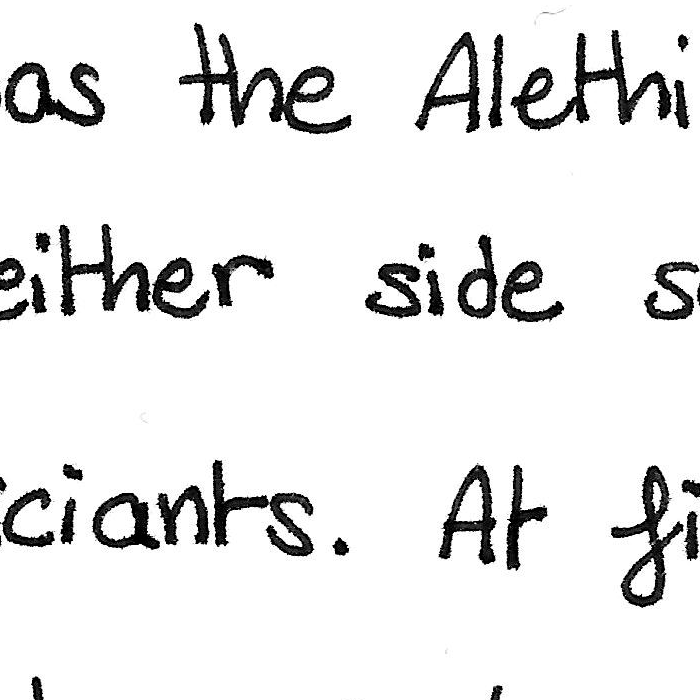 as the Alethi
either side s
ciants. At fi